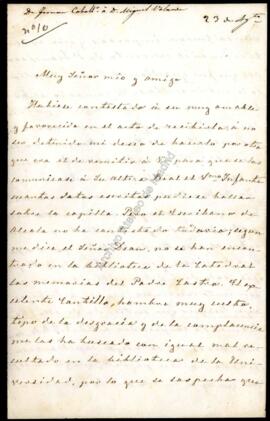 De Fernan Caball.º á D. Miguel Velarde
nº 10
23 de
Muy Señor mio y amigo
Hubiese contestado á su muy amable
y favorecida en el acto de recibirla, á no
ser detenido mi deseo de hacerlo por otro
que era el de remitir á V. para que se las
comunicase á Su Alteza Real el Smo Infante
cuantas datos escritos pudiese hallar
sobre la capilla. Pero el Escribano de
Alcalá no ha contestado todavia; segun
me dice el Señor Juan, no se han encon-
trado en la biblioteca de la Catedral
las memorias del Padre Castro. El ex-
celente Cantillo, hombre muy culto,
tipo de la desgracia y de la complacencia
me las ha buscado con igual mal re-
sultado en la biblioteca de la Uni-
versidad, por lo que se sospecha que